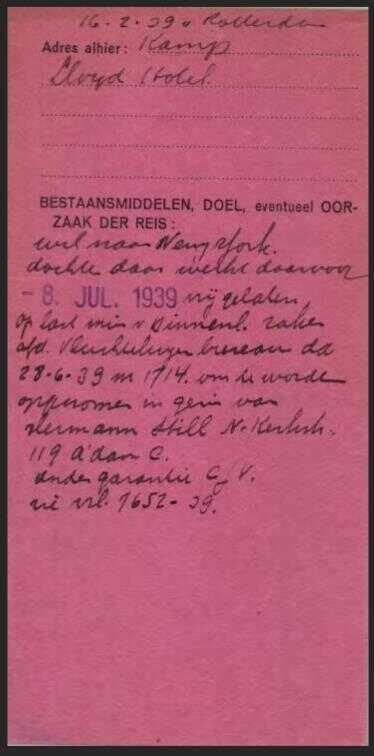 16-2-39 v Rotterdam
Adres alhier: Kamp
Lloyd Hotel
BESTAANSMIDDELEN, DOEL, eventueel OOR-
ZAAK DER REIS:
wil naar New York.
dochter daar werkt daarvoor
- 8. JUL. 1939 vrijgelaten
op last min v Binnenl. zaken
afd. Vluchtelingen bureau dd
28-6-39 n 1714. om te worden
opgenomen in gezin van
Hermann Still N. Kerkstr.
119 A'dam C.
onder garantie C/V.
vrl. 1652-39.